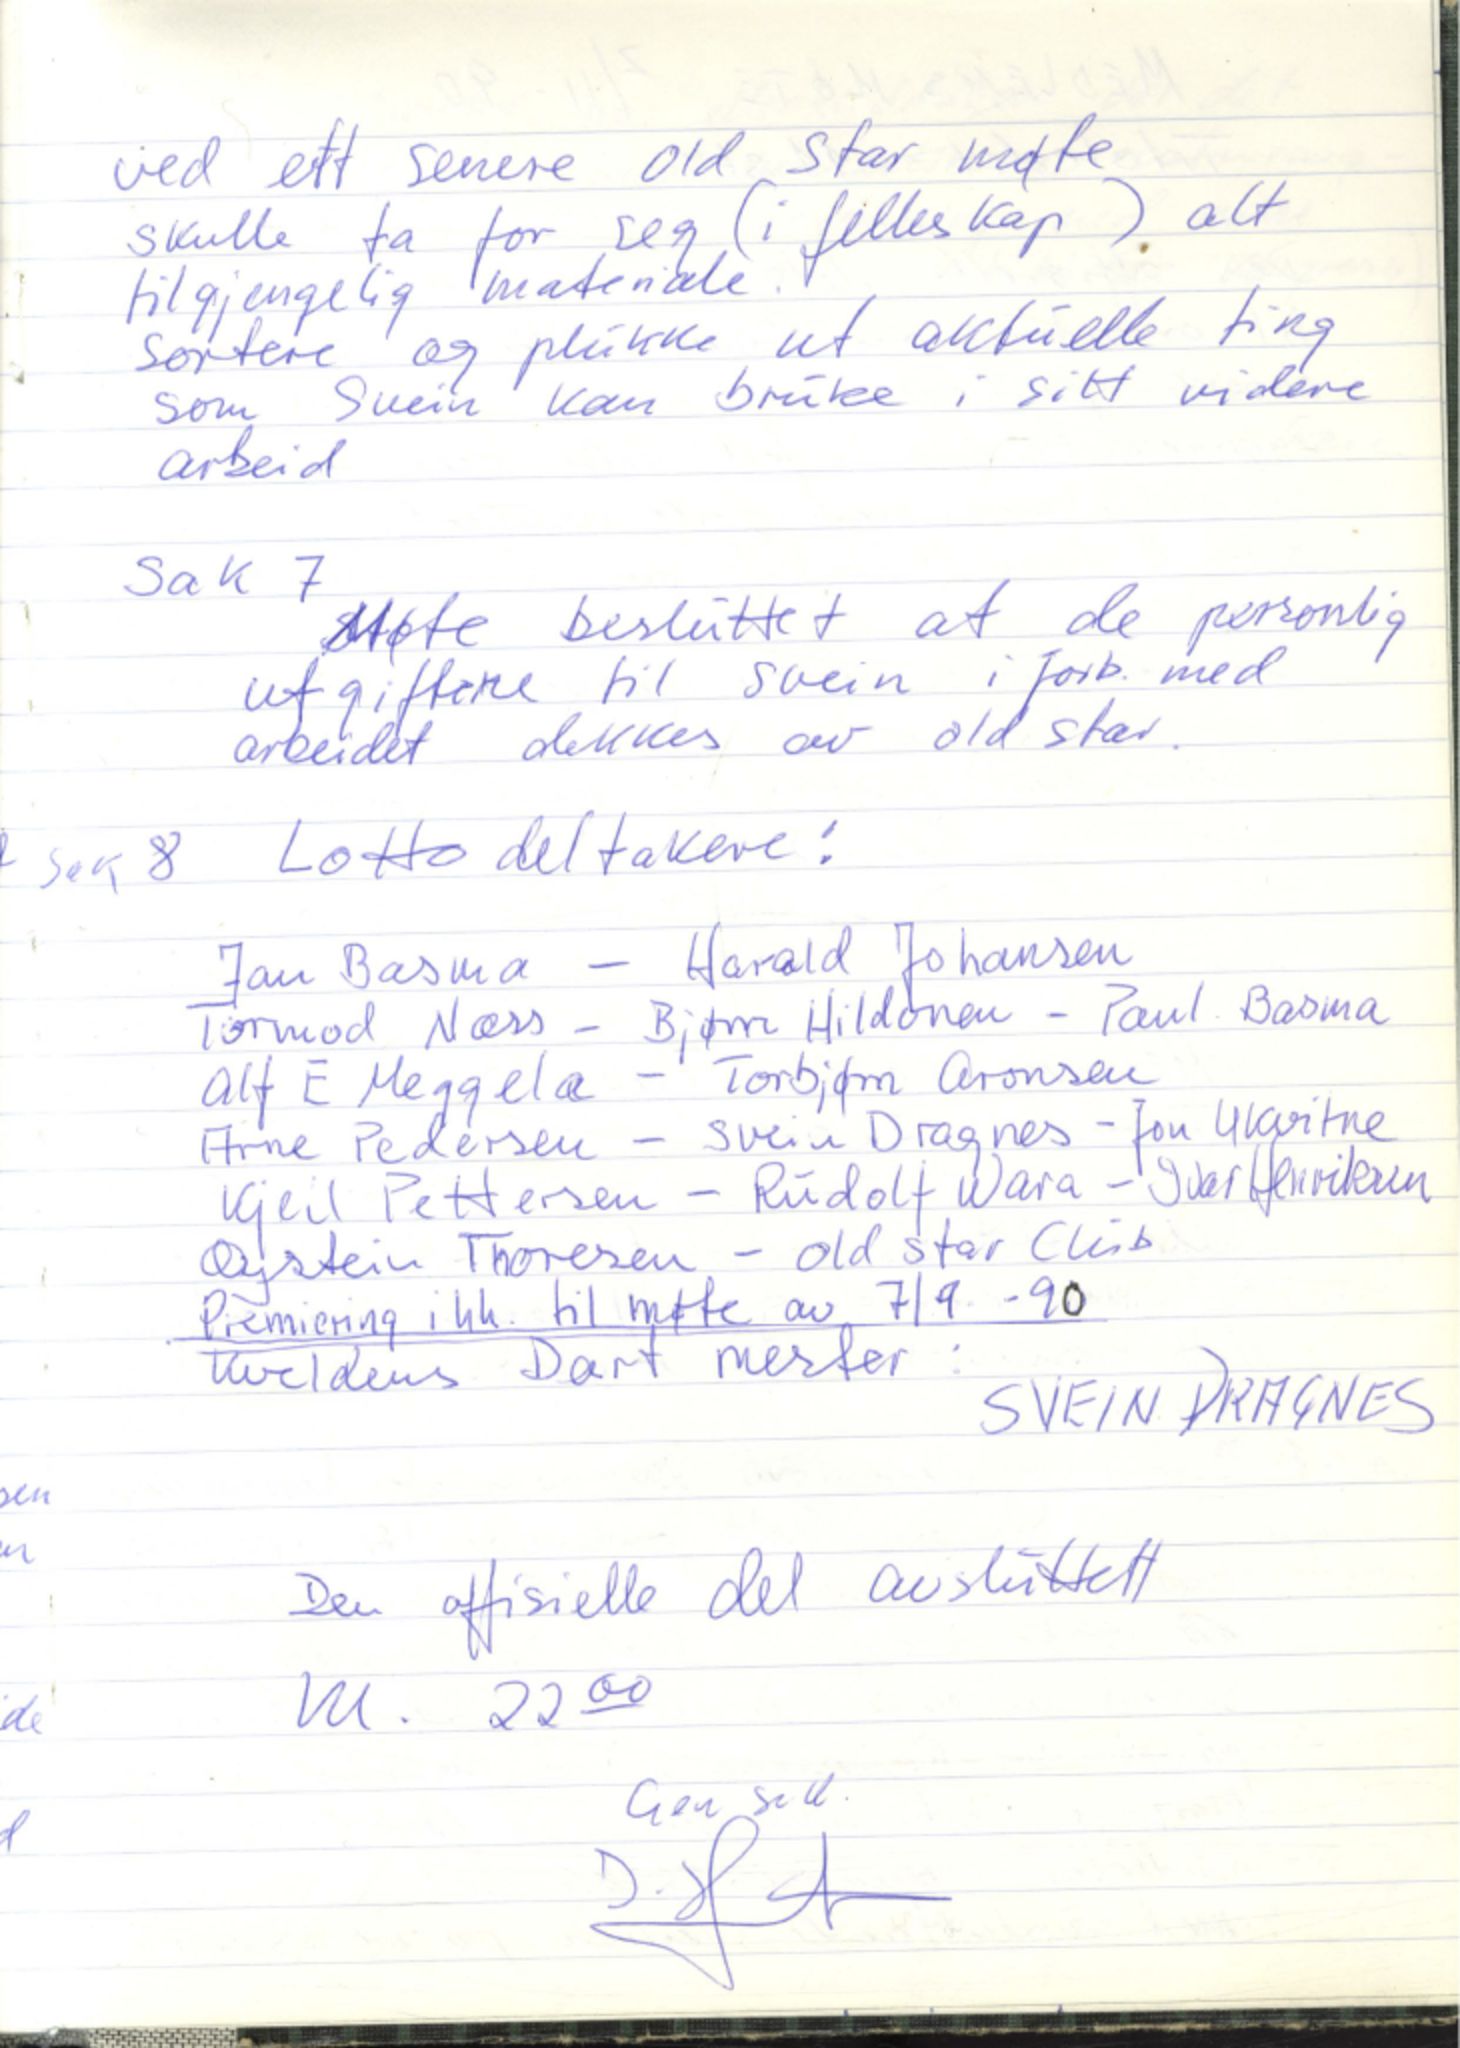 ved ett senere old star møte
skulle ta for seg (i felleskap) alt
tilgjengelig materiale.
Sortere og plukke ut aktuelle ting
som Svein kan bruke i sitt videre
arbeid
Sak 7
Møte besluttet at de personlig
utgiftene til Svein i forb. med
arbeidet dekkes av old star.
Sak 8 Lotto deltakere:
Jan Basma - Harald Johansen
Tormod Næss - Bjørn Hildonen - Paul Basma
Alf E Meggela - Torbjørn Aronsen
Arne Pedersen - Svein Dragnes - Jon
Kjell Pettersen - Rudolf Wara - Ivar Henriksen
Øystein Thoresen - old star Club
Premiering ihh. til møte av 7/9 -90
Kveldens Dart mester:
SVEIN DRAGNES
Den offisielle del avsluttett
kl. 22 00
Gen sek.
D.